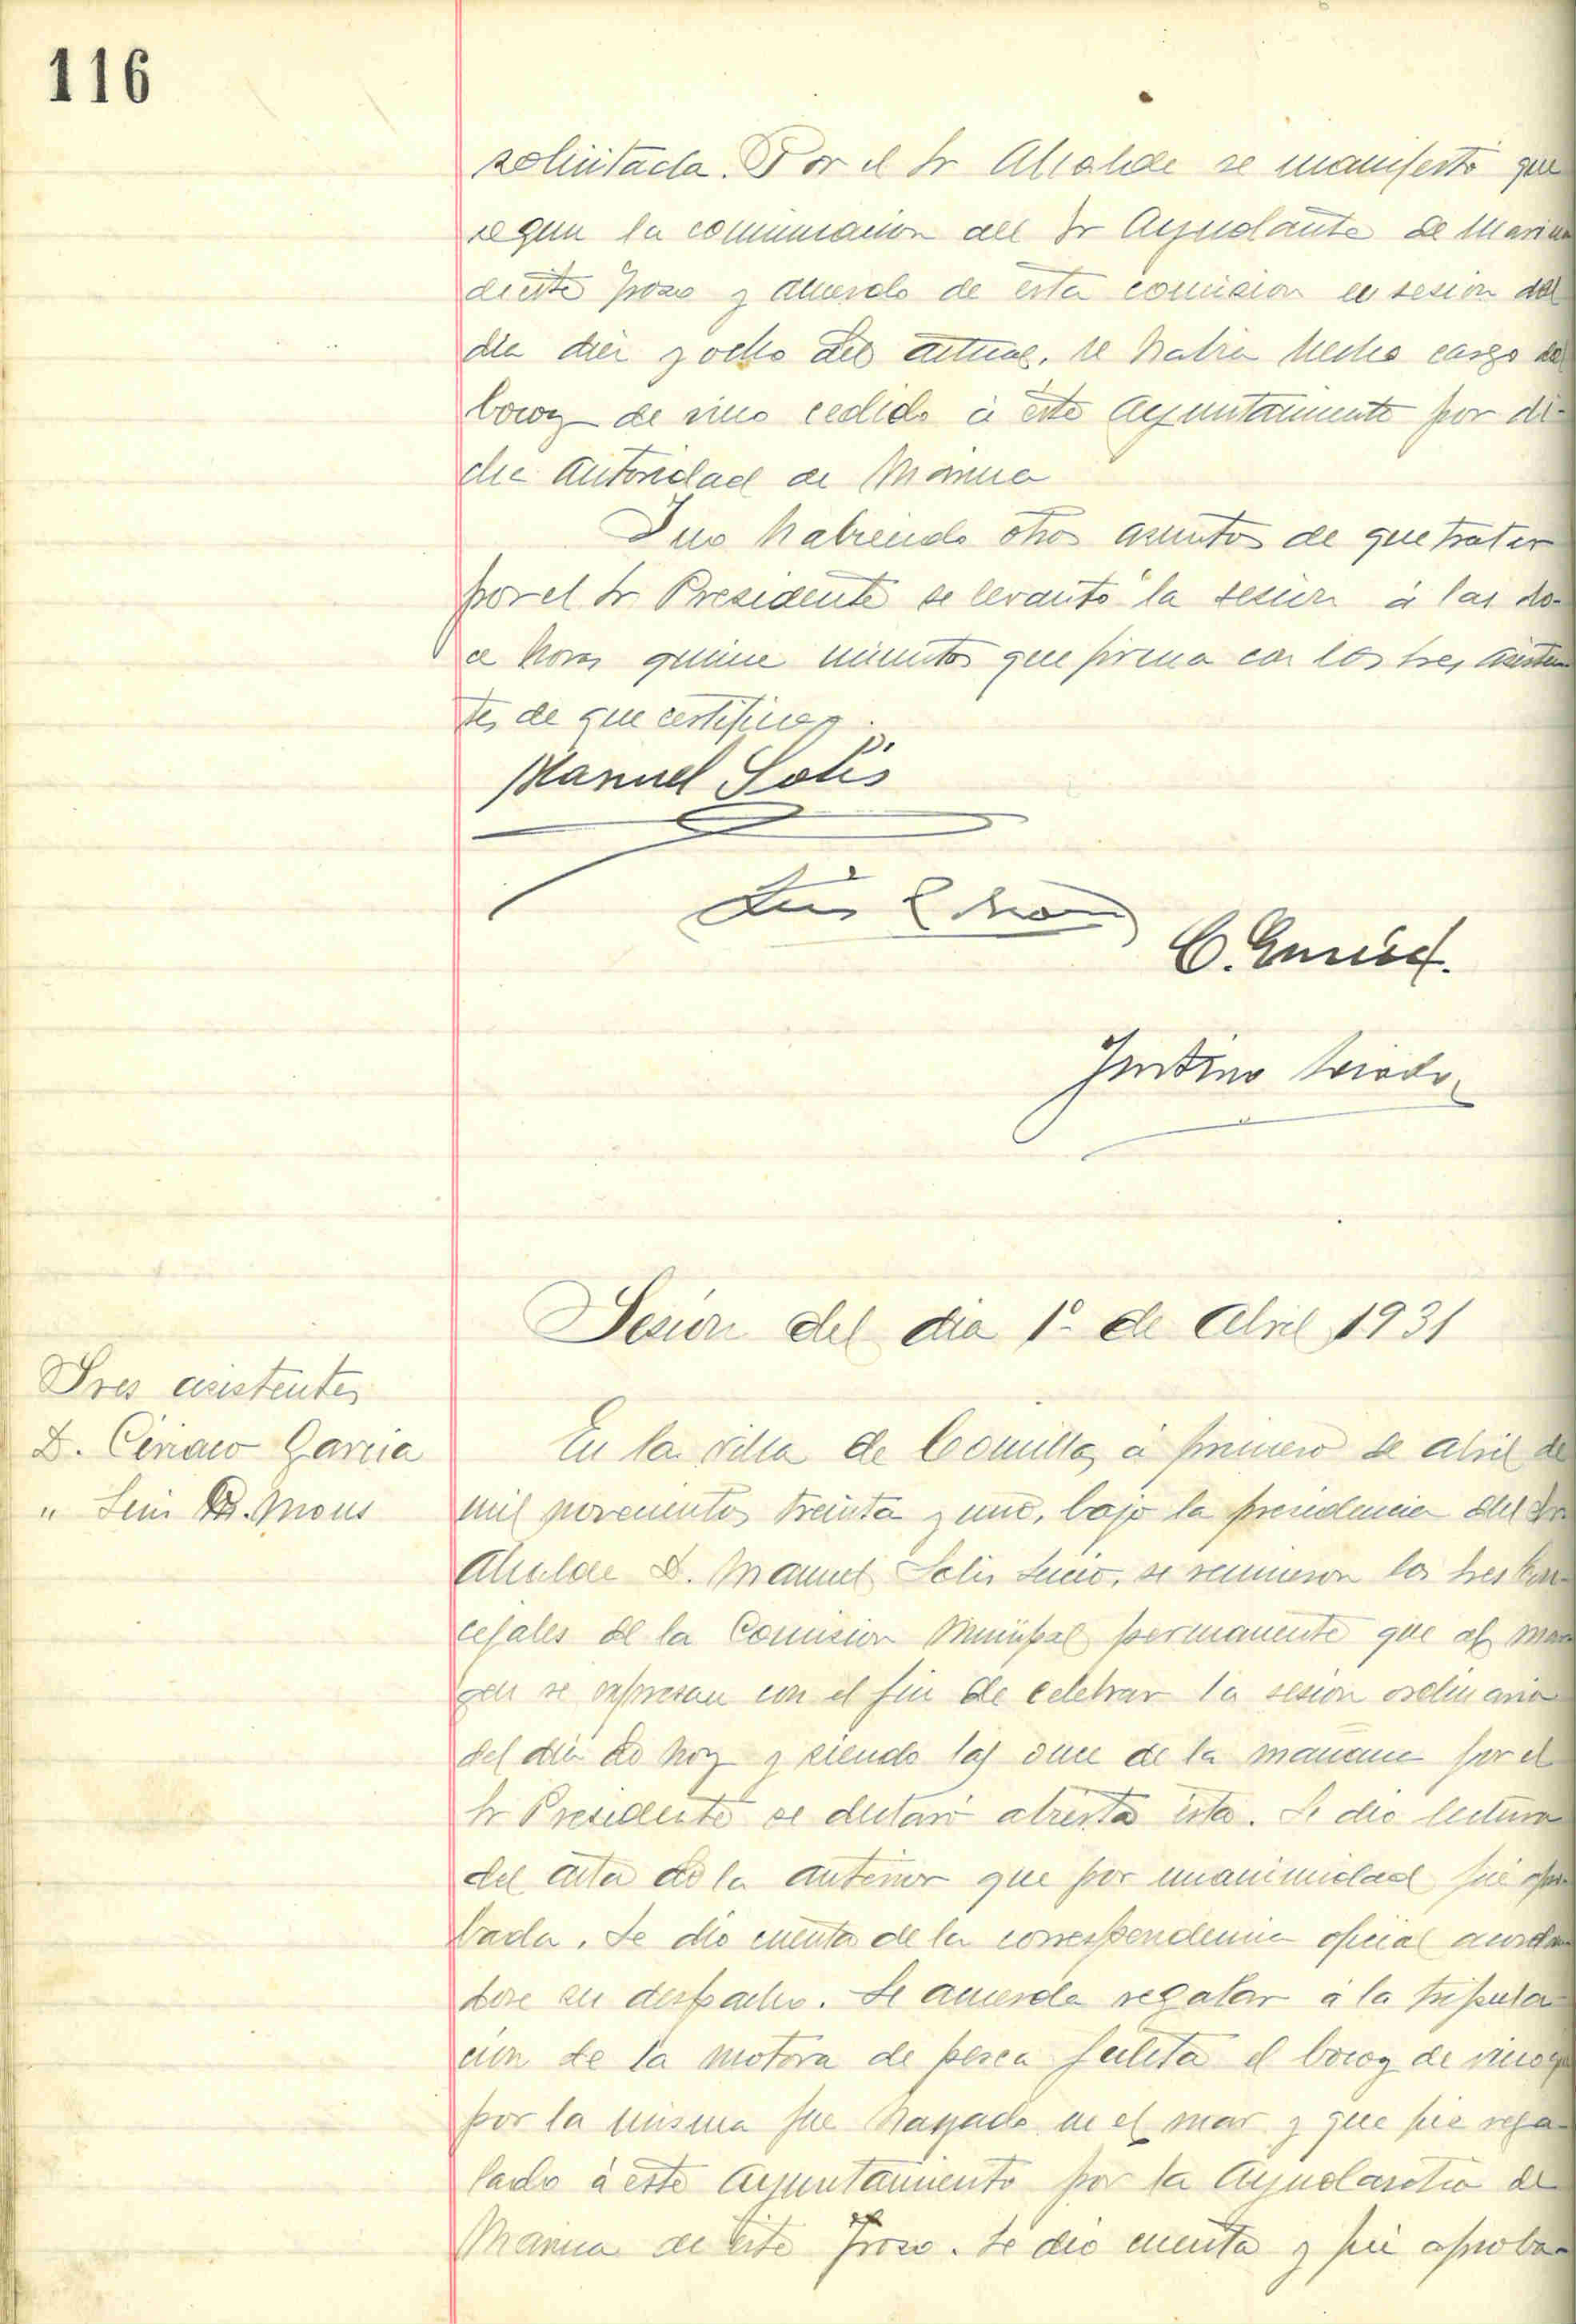 116
solicitada. Por el Sr Alcalde se manifestó que
segun la comunicacion del Sr Ayudante de Marina
de este y acuerdo de esta comision en sesion del
dia diez y ocho del actual, se habia hecho cargo del
bocoy de vino cedido á este Ayuntamiento por di-
cha autoridad de Marina
Y no habiendo otros asuntos de que tratar
por el Sr Presidente se levantó la sesion á las do-
ce horas quince minutos que firma con los Sres asisten
tes de que certifico.
Manuel Solis
Luis
Justino
Sesión del dia 1º de Abril 1931
Sres asistentes
D. Ciriaco Garcia
" Luis Mons
En la villa de Comillas á primero de abril de
mil novecientos treinta y uno, bajo la presidencia del Sr
Alcalde D. Manuel Solis se reunieron los Sres Con-
cejales de la Comision Municipal permanente que al mar
gen se expresan con el fin de celebrar la sesion ordinaria
del dia de hoy y siendo las once de la mañana por el
Sr Presidente se declaró abierta esta. Se dio lectura
del acta de la anterior que por unanimidad fué apro
bada. Se dió cuenta de la correspondencia oficial acordan
dose su despacho. Se acuerda regalar á la tripula-
cion de la motora de pesca Julita el bocoy de vino que
por la misma fue hayado en el mar y que fue rega-
lado á este Ayuntamiento por la Ayudantia de
Marina de este . Se dio cuenta y fué aproba-